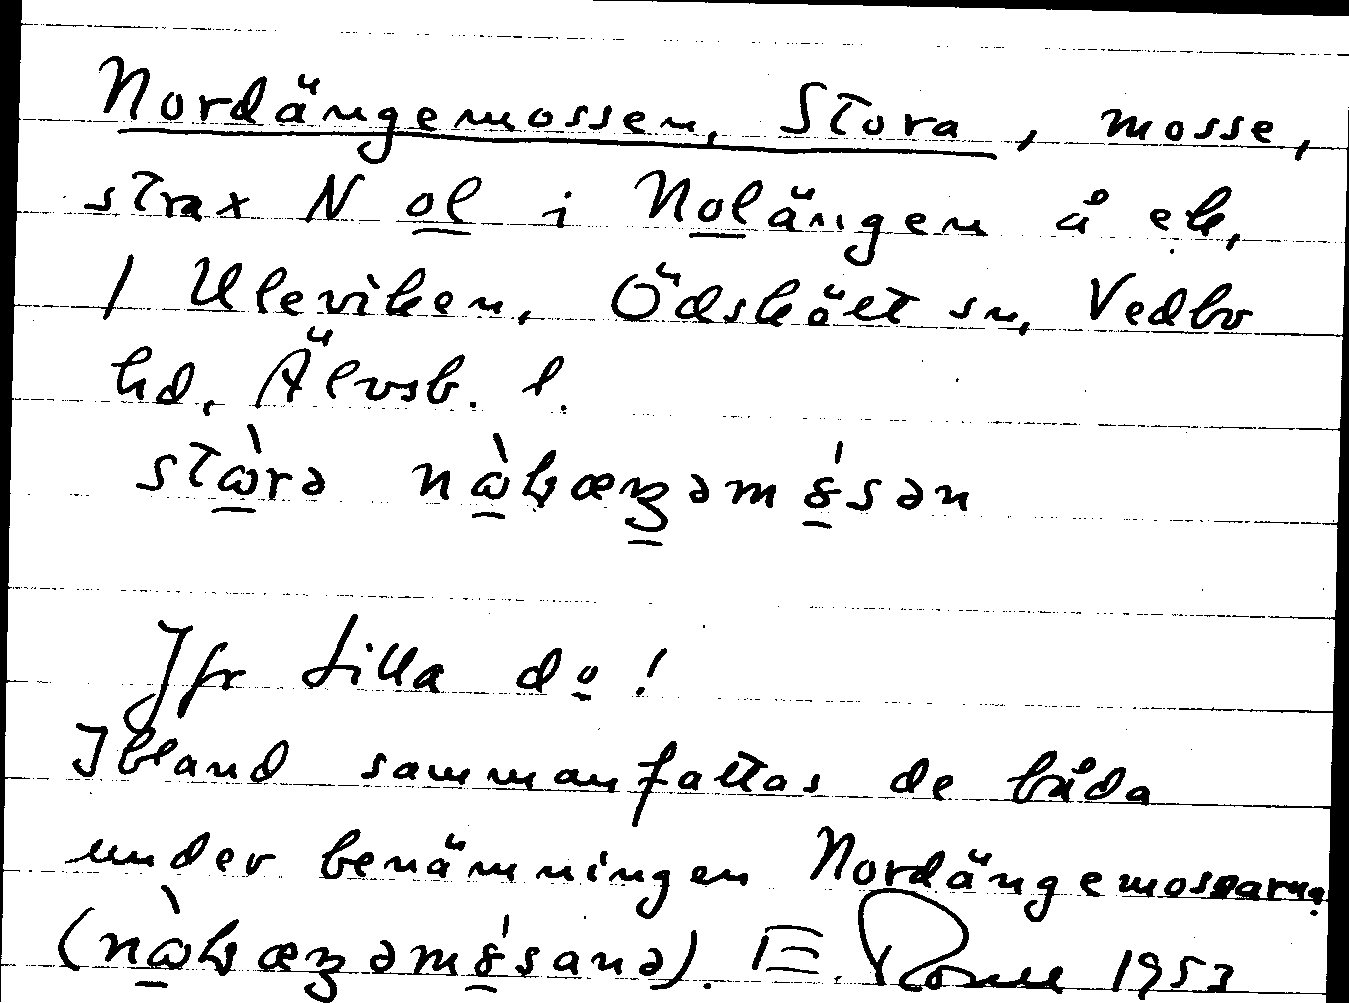 Nordängemossen, Stora, mosse,
strax N ol i Nolängen å ek.
1 Uleviken, Ödskölt sn, Vedbo
hd, Älvsb. l.
Jfr Lilla do!
Ibland sammanfattas de båda
under benämningen Nordängemossarna
E. 1953